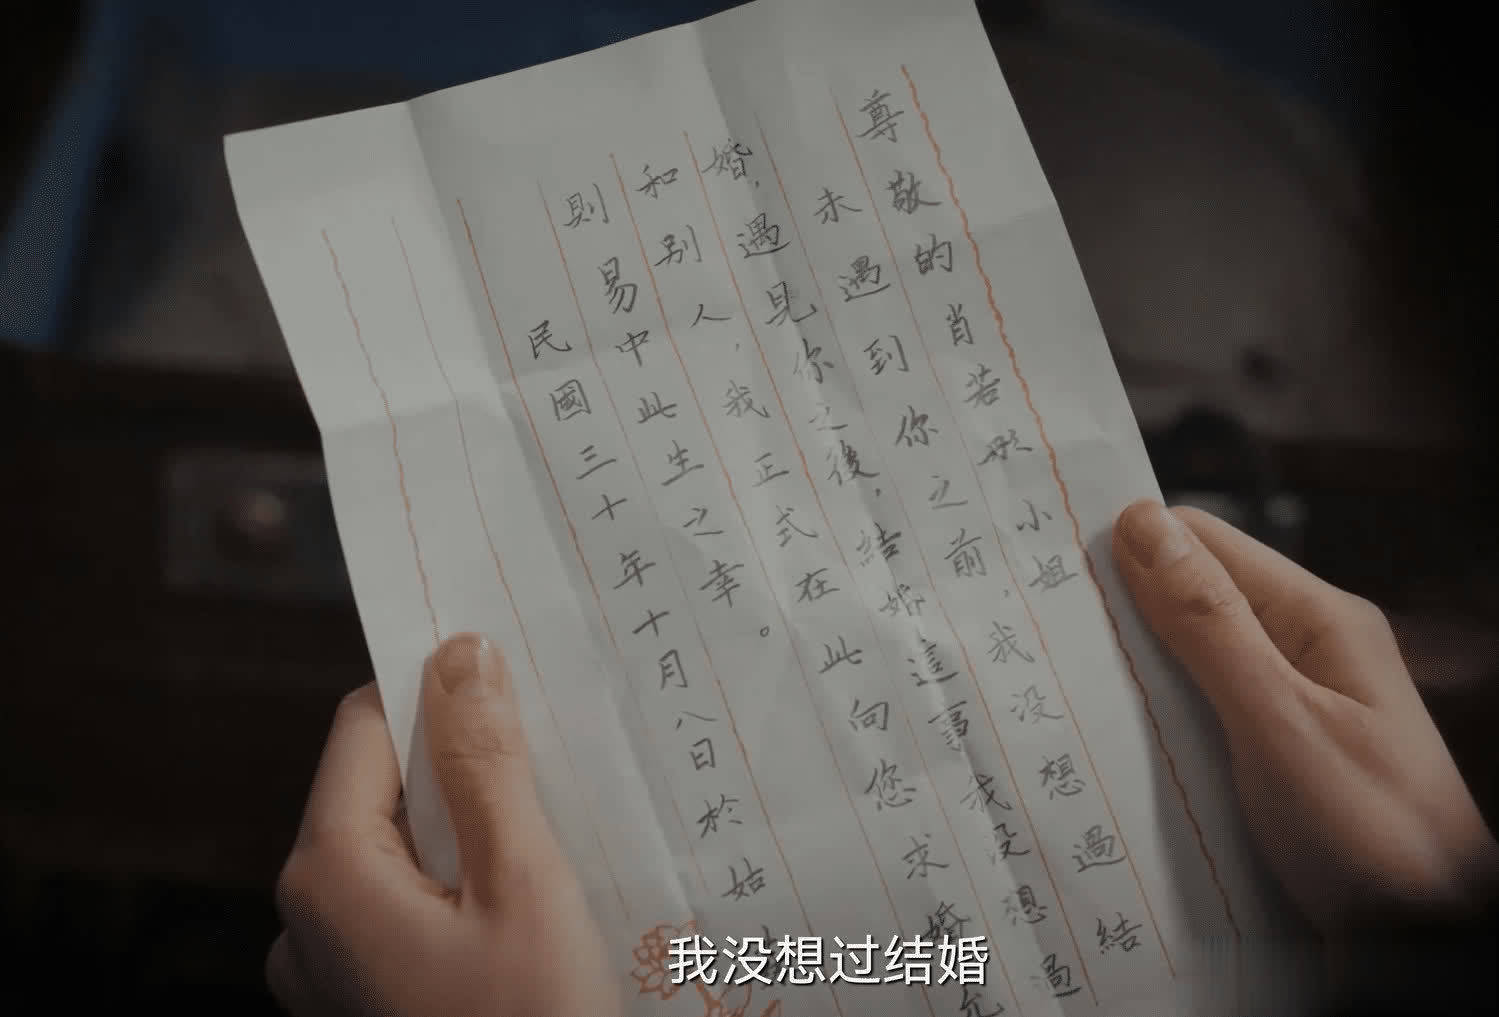 尊敬的肖若彤小姐
未遇到你之前，我没想過結
婚，遇見你之後，結婚這事我没想過
和别人，我正式在此向您求婚允
則易中此生之幸。
民國三十年十月八日於姑
我没想过结婚